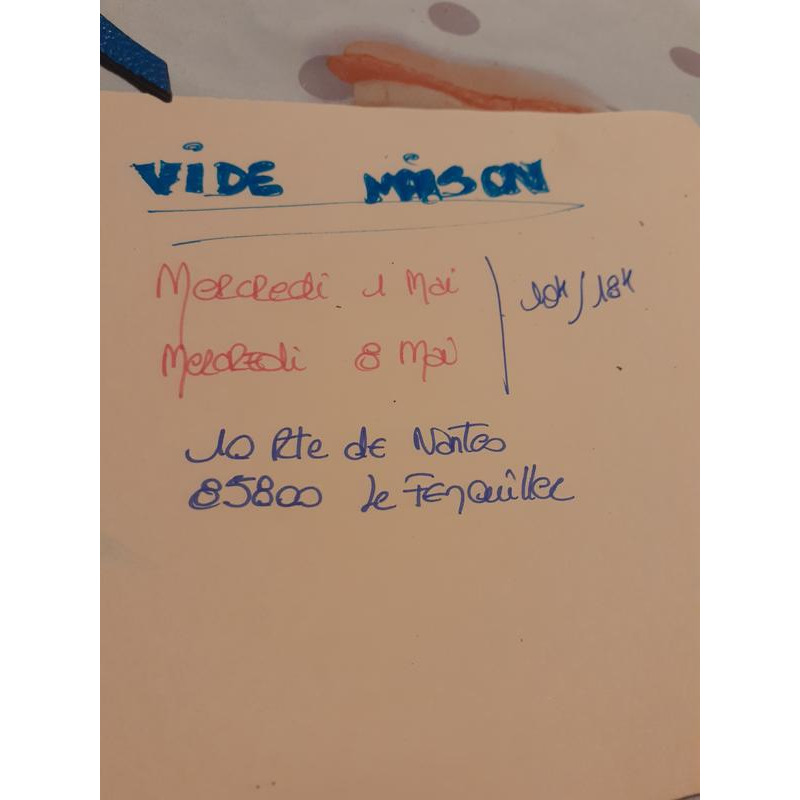 VIDE MAISON
Mercredi 1 Mai
10H/18H
Mercredi 8 Mai
10 Rte de Nantes
85800 Le Fenouiller